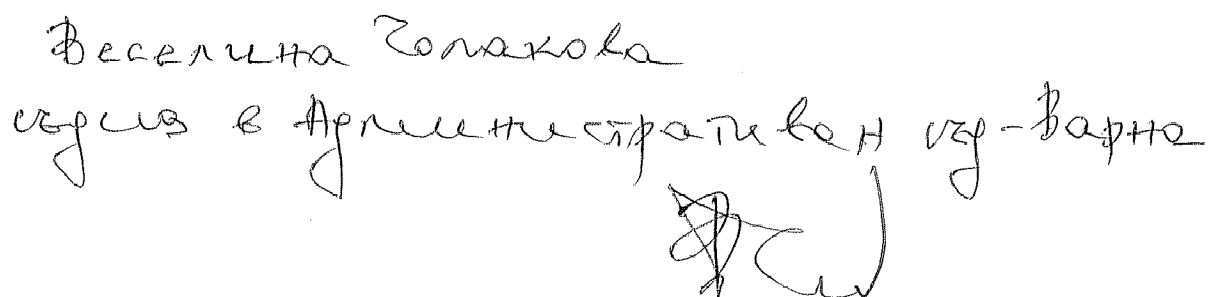 Веселина Чолакова
съдия в Административен съд-Варна